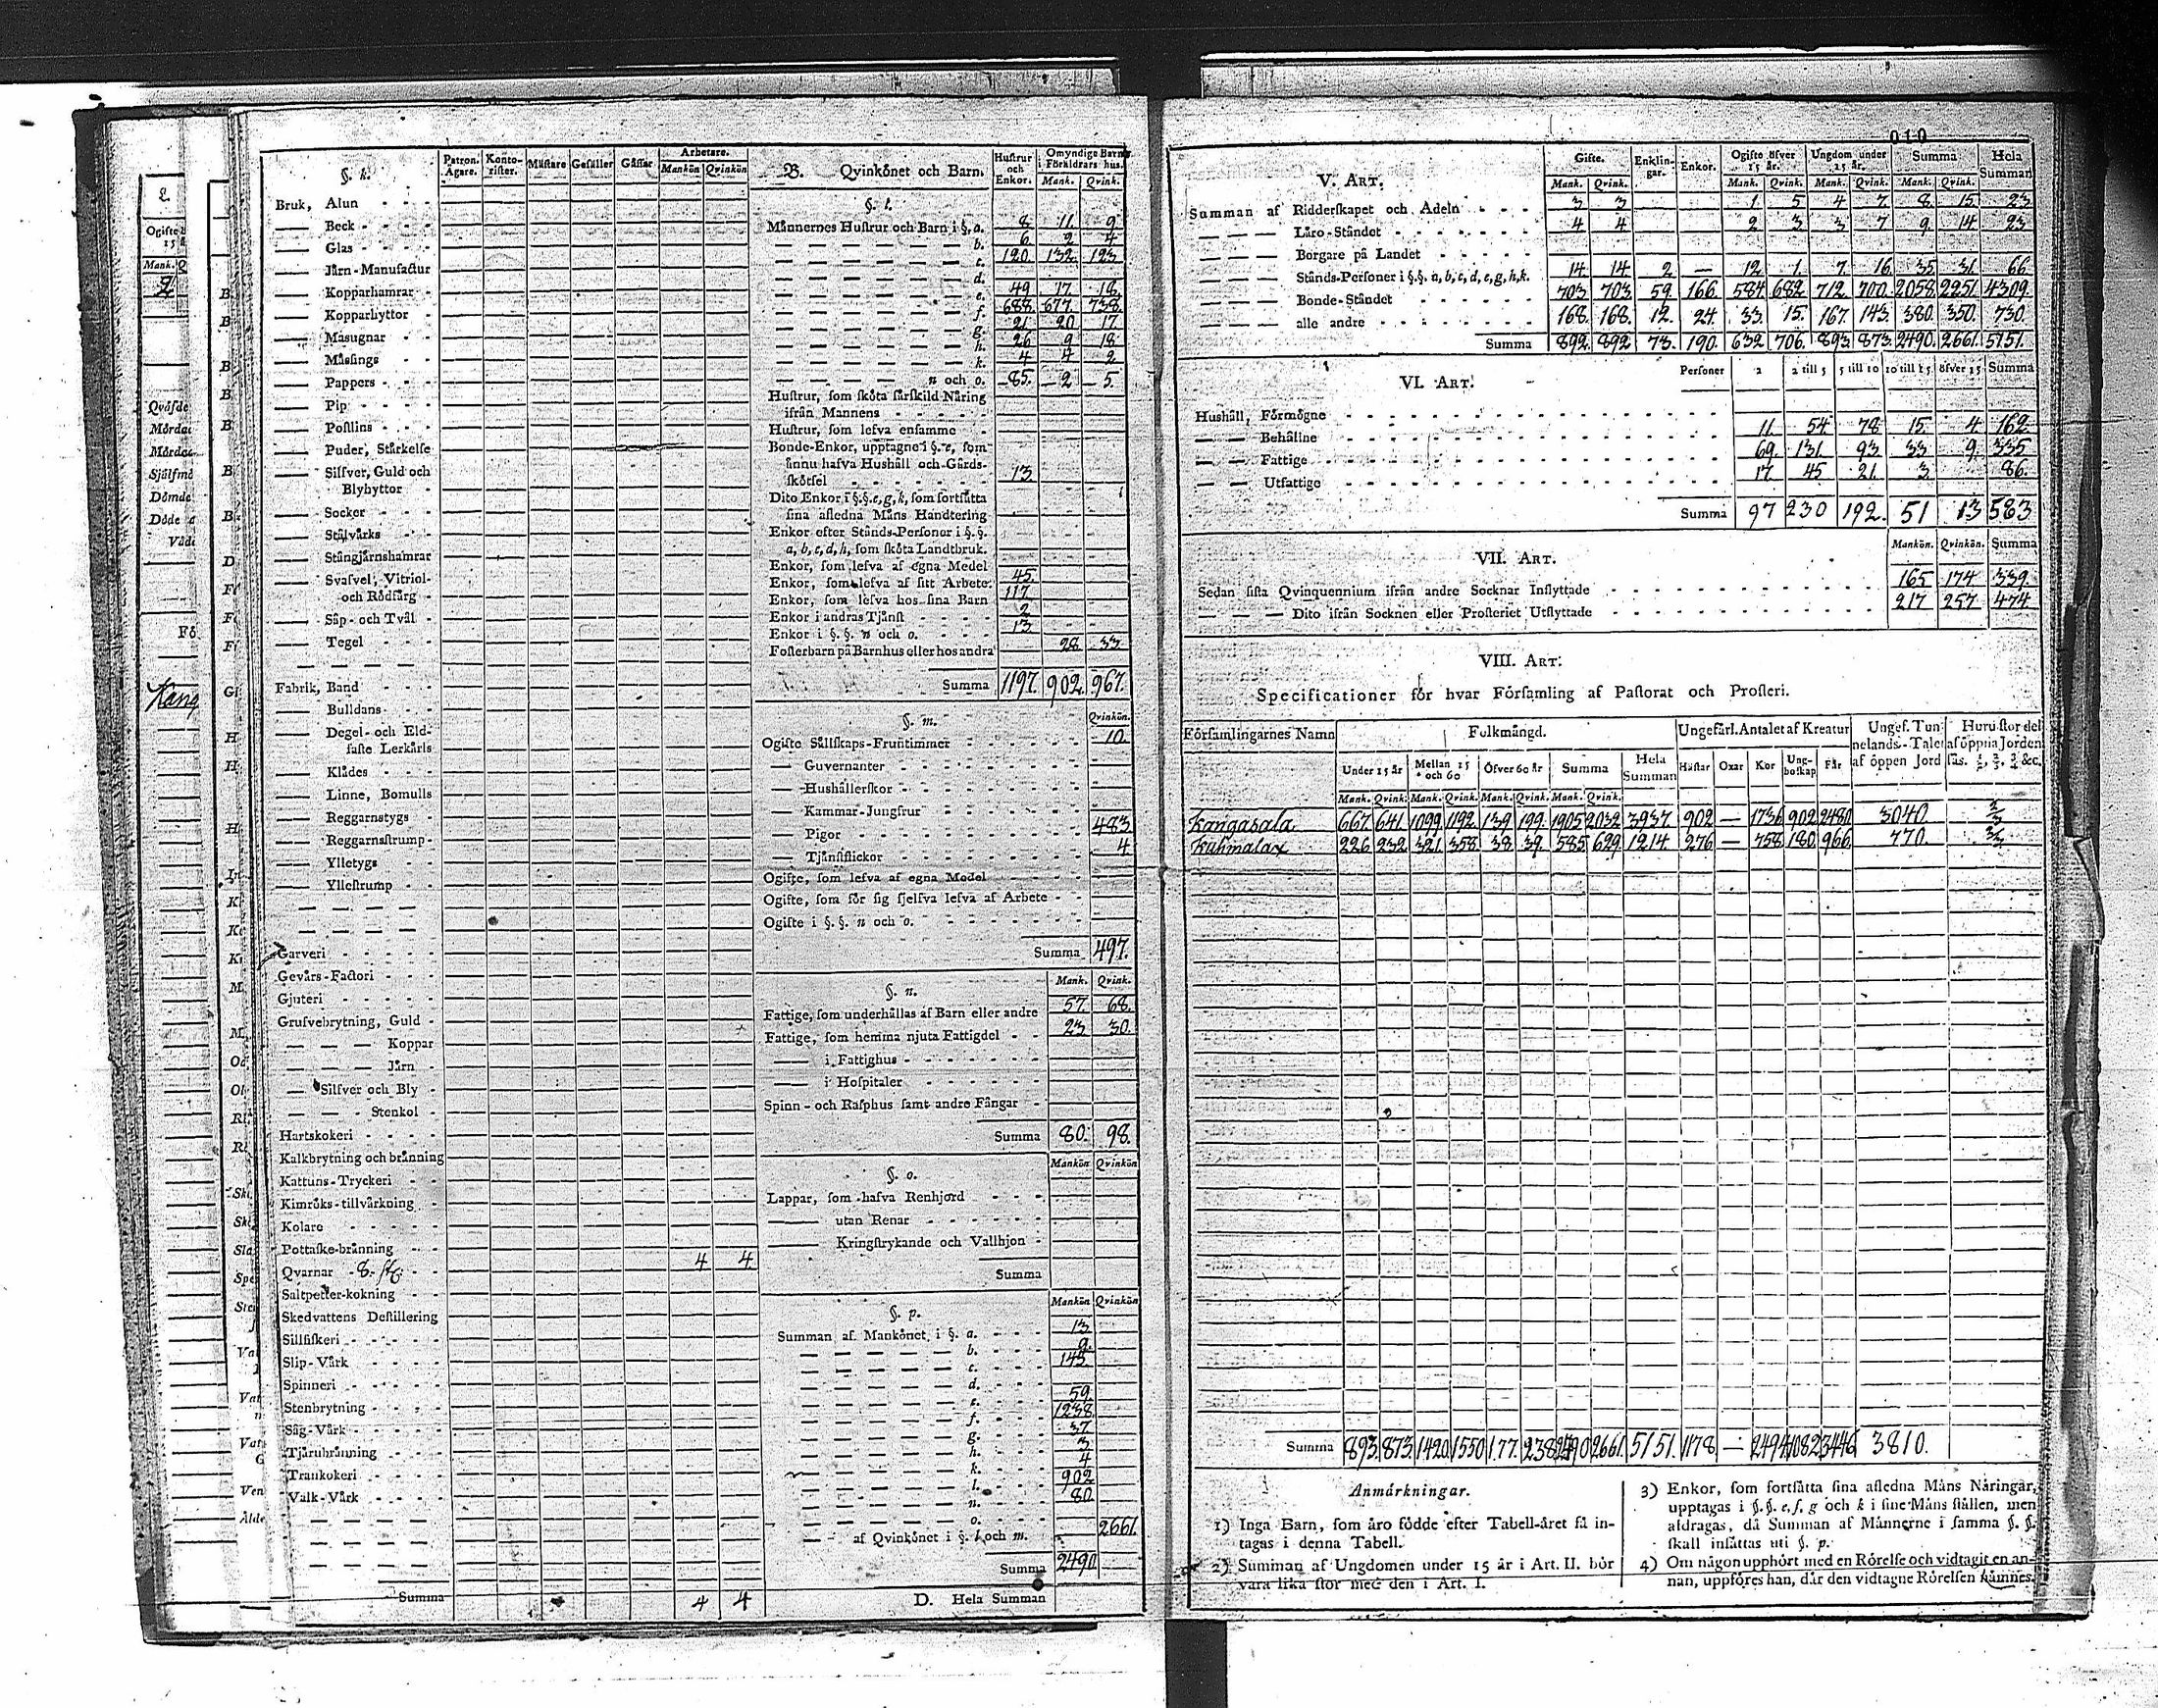 010
2
Ogifte
15
Mank. Q
2
Qväfde
Mördar
Mördar
Självmö
Dömde
Döde a
Våda
Fö
Kang
§. k.
Patron. Ägare.
Konto-rister.
Mästare
Gesäller
Gåssar
Arbetare.
Mankön Qvinkön
Bruk, Alun
—— Beck
—— Glas
—— Järn-Manufactur
—— Kopparhamrar
—— Kopparhyttor
—— Masugnar
—— Mässings
—— Pappers
—— Pip
—— Postlins
—— Puder, Stärkelse
—— Silfver, Guld och
Blyhyttor
—— Socker
—— Stålvärks
—— Stångjärnshamrar
—— Svafvel, Vitriol-
och Rödfärg
—— Såp- och Tvål
—— Tegel
Fabrik, Band
—— Bulldans
—— Degel- och Eld-
faste Lerkärls
—— Klädes
—— Linne, Bomulls
—— Reggarnstygs
—— Reggarnsstrump
—— Ylletygs
—— Yllestrump
Garveri
Gevärs-Factori
Gjuteri
Grufvebrytning, Guld
— — — Koppar
— — — Järn
— Silfver och Bly
— — — Stenkol
Hartskokeri
Kalkbrytning och bränning
Kattuns-Tryckeri
Kimröks-tillvärkning
Kolare
Pottaske-bränning
Qvarnar 8. st. 4 4
Saltpetter-kokning
Skedvattens Destillering
Sillfiskeri
Slip-Värk
Spinneri
Stenbrytning
Såg-Värk
Tjärubränning
Trankokeri
Valk-Värk
Summa 4 4
B. Qvinkönet och Barn.
Hustrur och Enkor.
Omyndige Barn i Föräldrars hus.
Mank. Qvink.
§. l.
Männernes Hustrur och Barn i §. a. 8 11 9
b. 6 2 4
c. 120 132 123
d.
e. 49 17 18
f. 688 677 738
g. 21 20 17
h. 26 9 18
k. 4 4 2
n och o. 85 2 5
Hustrur, som sköta särskild Näring
ifrån Mannens
Hustrur, som lefva ensamme
Bonde-Enkor, upptagne i §. e, som
ännu hafva Hushåll och Gårds-
skötsel 13
Dito Enkor i §.§. e, g, k, som fortsätta
sina aflednа Mäns Handtering
Enkor efter Stånds-Personer i §.§.
a, b, c, d, h, som sköta Landtbruk.
Enkor, som lefva af egna Medel
Enkor, som lefva af sitt Arbete 45
Enkor, som lefva hos sina Barn 117
Enkor i andras Tjänst 2
Enkor i §.§. n och o. 13
Fosterbarn på Barnhus eller hos andra 28 33
Summa 1197. 902. 967.
§. m.
Qvinkön.
Ogifte Sällskaps-Fruntimmer 10
— Guvernanter
— Hushållerskor
— Kammar-Jungfrur
— Pigor 483
— Tjänstflickor 4
Ogifte, som lefva af egna Medel
Ogifte, som för sig sjelfva lefva af Arbete
Ogifte i §.§. n och o.
Summa 497.
Mank. Qvink.
§. n.
Fattige, som underhållas af Barn eller andre 57 68
Fattige, som hemma njuta Fattigdel 23 30
—— i Fattighus
—— i Hospitaler
Spinn- och Rasphus samt andre Fångar
Summa 80. 98.
Mankön Qvinkön
§. o.
Lappar, som hafva Renhjord
—— utan Renar
—— Kringstrykande och Vallhjon
Summa
Mankön Qvinkön
§. p.
Summan af Mankönet i §. a. 13
b. 9
c. 145
d.
e. 59
f. 1238
g. 37
h. 3
k. 4
l. 902
n. 80
o.
af Qvinkönet i §. l. och m. 2661
Summa 2490
D. Hela Summan
V. Art.
Gifte. Enklin-gar. Enkor. Ogifte öfver 15 år. Ungdom under 15 år. Summa Hela Summan
Mank. Qvink. Mank. Qvink. Mank. Qvink. Mank. Qvink.
Summan af Ridderskapet och Adeln 3 3 1 5 4 7 8 15 23
— — — Läro-Ståndet 4 4 2 3 3 7 9 14 23
— — — Borgare på Landet
— — — Stånds-Personer i §.§. a, b, c, d, e, g, h, k. 14 14 2 — 12 1 7 16 35 31 66
— — — Bonde-Ståndet 703 703 59 166 584 682 712 700 2058 2251 4309
— — — alle andre 168 168 12 24 33 15 167 143 380 350 730
Summa 892 892 73 190 632 706 893 873 2490 2661 5151
VI. Art.
Personer 2 2 till 5 5 till 10 10 till 15 öfver 15 Summa
Hushåll, Förmögne 11 54 78 15 4 162
— — Behållne 69 131 93 33 9 335
— — Fattige 17 45 21 3 86
— — Utfattige
Summa 97 230 192. 51 13 583
VII. Art.
Mankön. Qvinkön. Summa
Sedan sista Qvinquennium ifrån andre Socknar Inflyttade 165 174 339
— — Dito ifrån Socknen eller Prosteriet Utflyttade 217 257 474
VIII. Art.
Specificationer för hvar Församling af Pastorat och Prosteri.
Församlingarnes Namn
Folkmängd.
Ungefärl. Antalet af Kreatur
Ungef. Tunnelands-Talet af öppen Jord
Huru stor del af öppna Jorden sås. ½, ⅔, ¾ &c.
Under 15 år Mellan 15 och 60 Öfver 60 år Summa Hela Summan Hästar Oxar Kor Ung-boskap Får
Mank. Qvink. Mank. Qvink. Mank. Qvink. Mank. Qvink.
Kangasala 667 641 1099 1192 139 199 1905 2032 3937 902 — 1736 902 2480 3040 ⅔
Kuhmalax 226 232 321 358 38 39 585 629 1214 276 — 758 180 966 770
Summa 893 873 1420 1550 177 238 2490 2661 5151 1178 — 2494 1082 3446 3810.
Anmärkningar.
1) Inga Barn, som äro födde efter Tabell-året få in-
tagas i denna Tabell.
2) Summan af Ungdomen under 15 år i Art. II. bör
vara lika stor med den i Art. I.
3) Enkor, som fortsätta sina aflednа Mäns Näringar,
upptagas i §.§. e, f, g och k i sine Mäns ställen, men
afdragas, då Summan af Männerne i samma §.§.
skall insättas uti §. p.
4) Om någon upphört med en Rörelse och vidtagit en an-
nan, uppföres han, där den vidtagne Rörelsen nämnes.